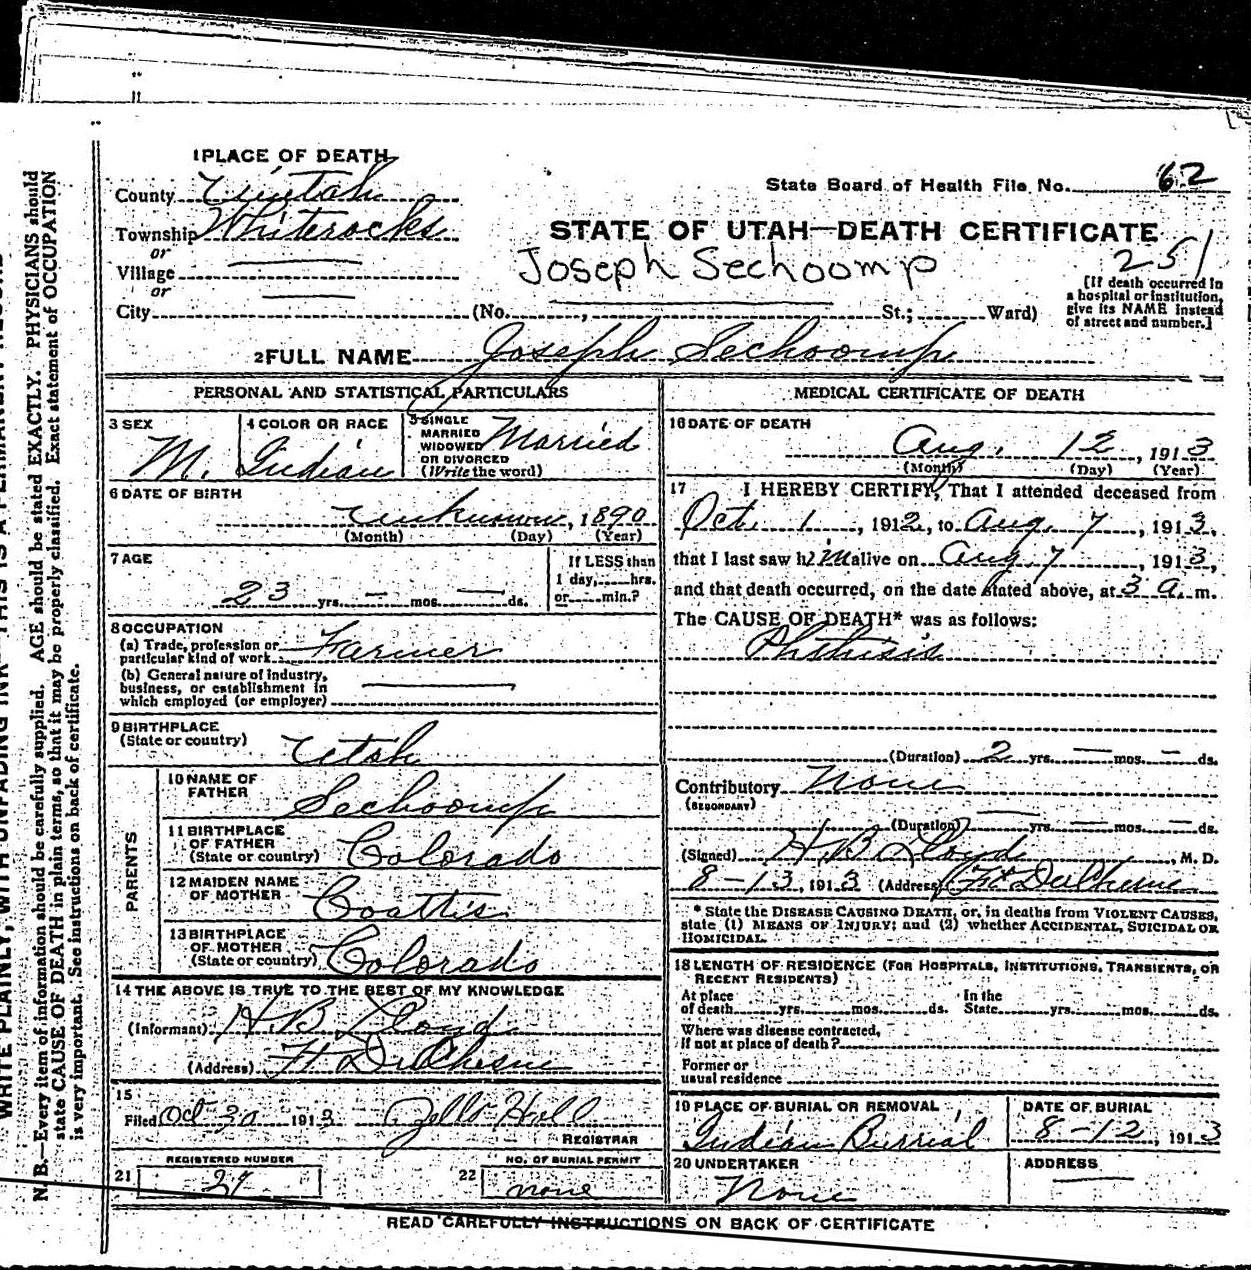 1 PLACE OF DEATH
County Uintah
Township Whiterocks
or
Village
or
City (No. , St.; Ward)
State Board of Health File No. 62
STATE OF UTAH—DEATH CERTIFICATE
251
Joseph Sechoomp
[If death occurred in a hospital or institution, give its NAME instead of street and number.]
2 FULL NAME Joseph Sechoomp
PERSONAL AND STATISTICAL PARTICULARS
3 SEX M.
4 COLOR OR RACE Indian
5 SINGLE MARRIED WIDOWED OR DIVORCED (Write the word) Married
6 DATE OF BIRTH
Unknown, 1890
(Month) (Day) (Year)
7 AGE
23 yrs. — mos. — ds.
If LESS than 1 day, hrs. or min.?
8 OCCUPATION
(a) Trade, profession or particular kind of work Farmer
(b) General nature of industry, business, or establishment in which employed (or employer)
9 BIRTHPLACE
(State or country) Utah
PARENTS
10 NAME OF FATHER Sechoomp
11 BIRTHPLACE OF FATHER (State or country) Colorado
12 MAIDEN NAME OF MOTHER Coattis
13 BIRTHPLACE OF MOTHER (State or country) Colorado
14 THE ABOVE IS TRUE TO THE BEST OF MY KNOWLEDGE
(Informant) H B Lloyd
(Address) Ft DuChesne
15
Filed Oct 30 1913 Hall
REGISTRAR
REGISTERED NUMBER
21
NO. OF BURIAL PERMIT
22 none
MEDICAL CERTIFICATE OF DEATH
16 DATE OF DEATH
Aug. 12, 1913
(Month) (Day) (Year)
17 I HEREBY CERTIFY, That I attended deceased from
Oct. 1, 1912, to Aug. 7, 1913,
that I last saw him alive on Aug. 7, 1913,
and that death occurred, on the date stated above, at 3 a. m.
The CAUSE OF DEATH* was as follows:
Phthisis
(Duration) 2 yrs. — mos. — ds.
Contributory None
(SECONDARY)
(Duration) yrs. — mos. — ds.
(Signed) H B Lloyd, M. D.
8-13, 1913 (Address) Ft DuChesne
* State the DISEASE CAUSING DEATH, or, in deaths from VIOLENT CAUSES,
state (1) MEANS OF INJURY; and (2) whether ACCIDENTAL, SUICIDAL OR
HOMICIDAL.
18 LENGTH OF RESIDENCE (FOR HOSPITALS, INSTITUTIONS, TRANSIENTS, OR
RECENT RESIDENTS)
At place of death yrs. mos. ds. In the State yrs. mos. ds.
Where was disease contracted,
if not at place of death?
Former or
usual residence
19 PLACE OF BURIAL OR REMOVAL
Indian Burrial
DATE OF BURIAL
8-12, 1913
20 UNDERTAKER
None
ADDRESS
READ CAREFULLY INSTRUCTIONS ON BACK OF CERTIFICATE
WRITE PLAINLY, WITH UNFADING INK—THIS IS A PERMANENT RECORD
N. B.—Every item of information should be carefully supplied. AGE should be stated EXACTLY. PHYSICIANS should
state CAUSE OF DEATH in plain terms, so that it may be properly classified. Exact statement of OCCUPATION
is very important. See instructions on back of certificate.